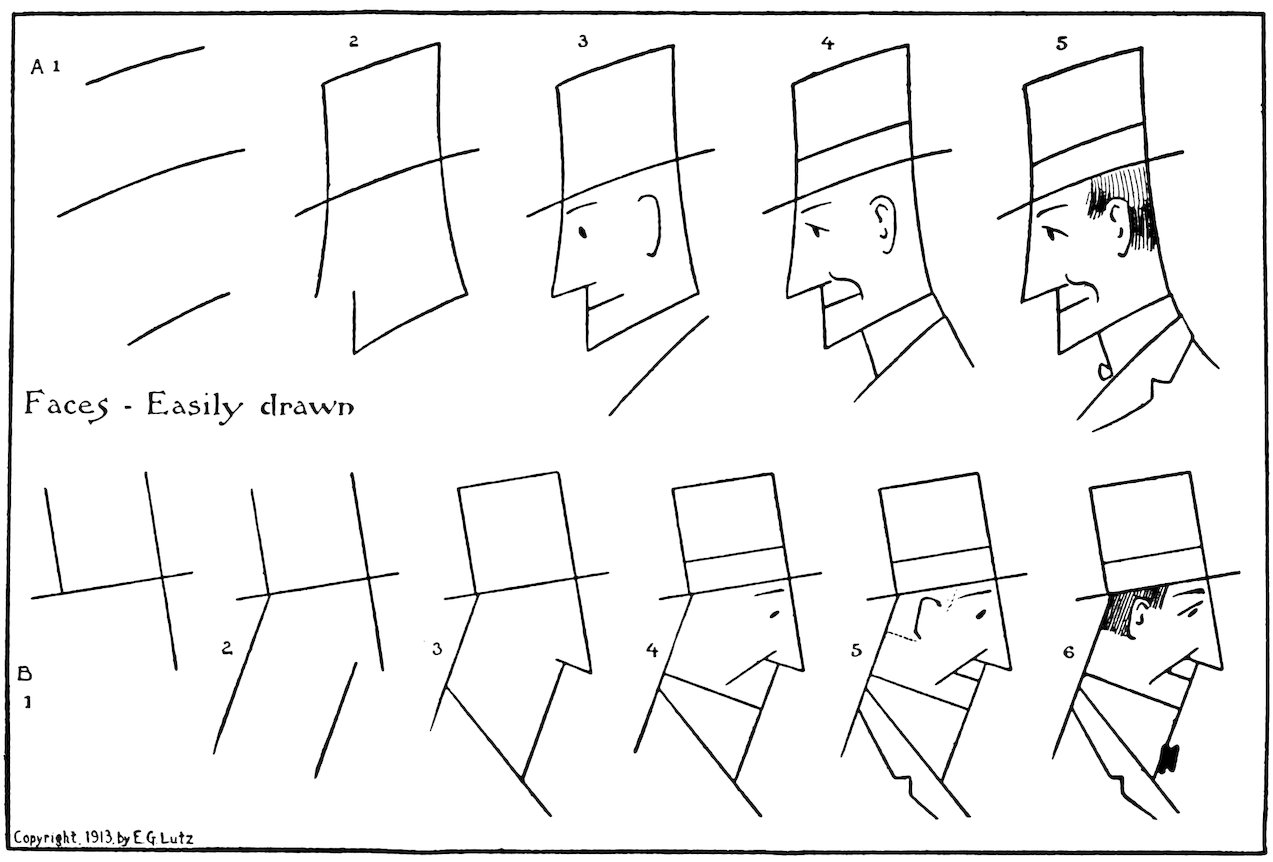 A 1 2 3 4 5
Faces - Easily drawn
B
1 2 3 4 5 6
Copyright, 1913, by E.G. Lutz